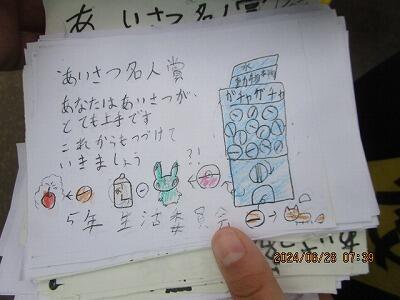 あいさつ名人賞
あいさつ名人賞
あなたはあいさつが、
とても上手です
これからもつづけて
いきましょう
ガチャガチャ
?!
5年 生活委員会
2024/06/28 07:39